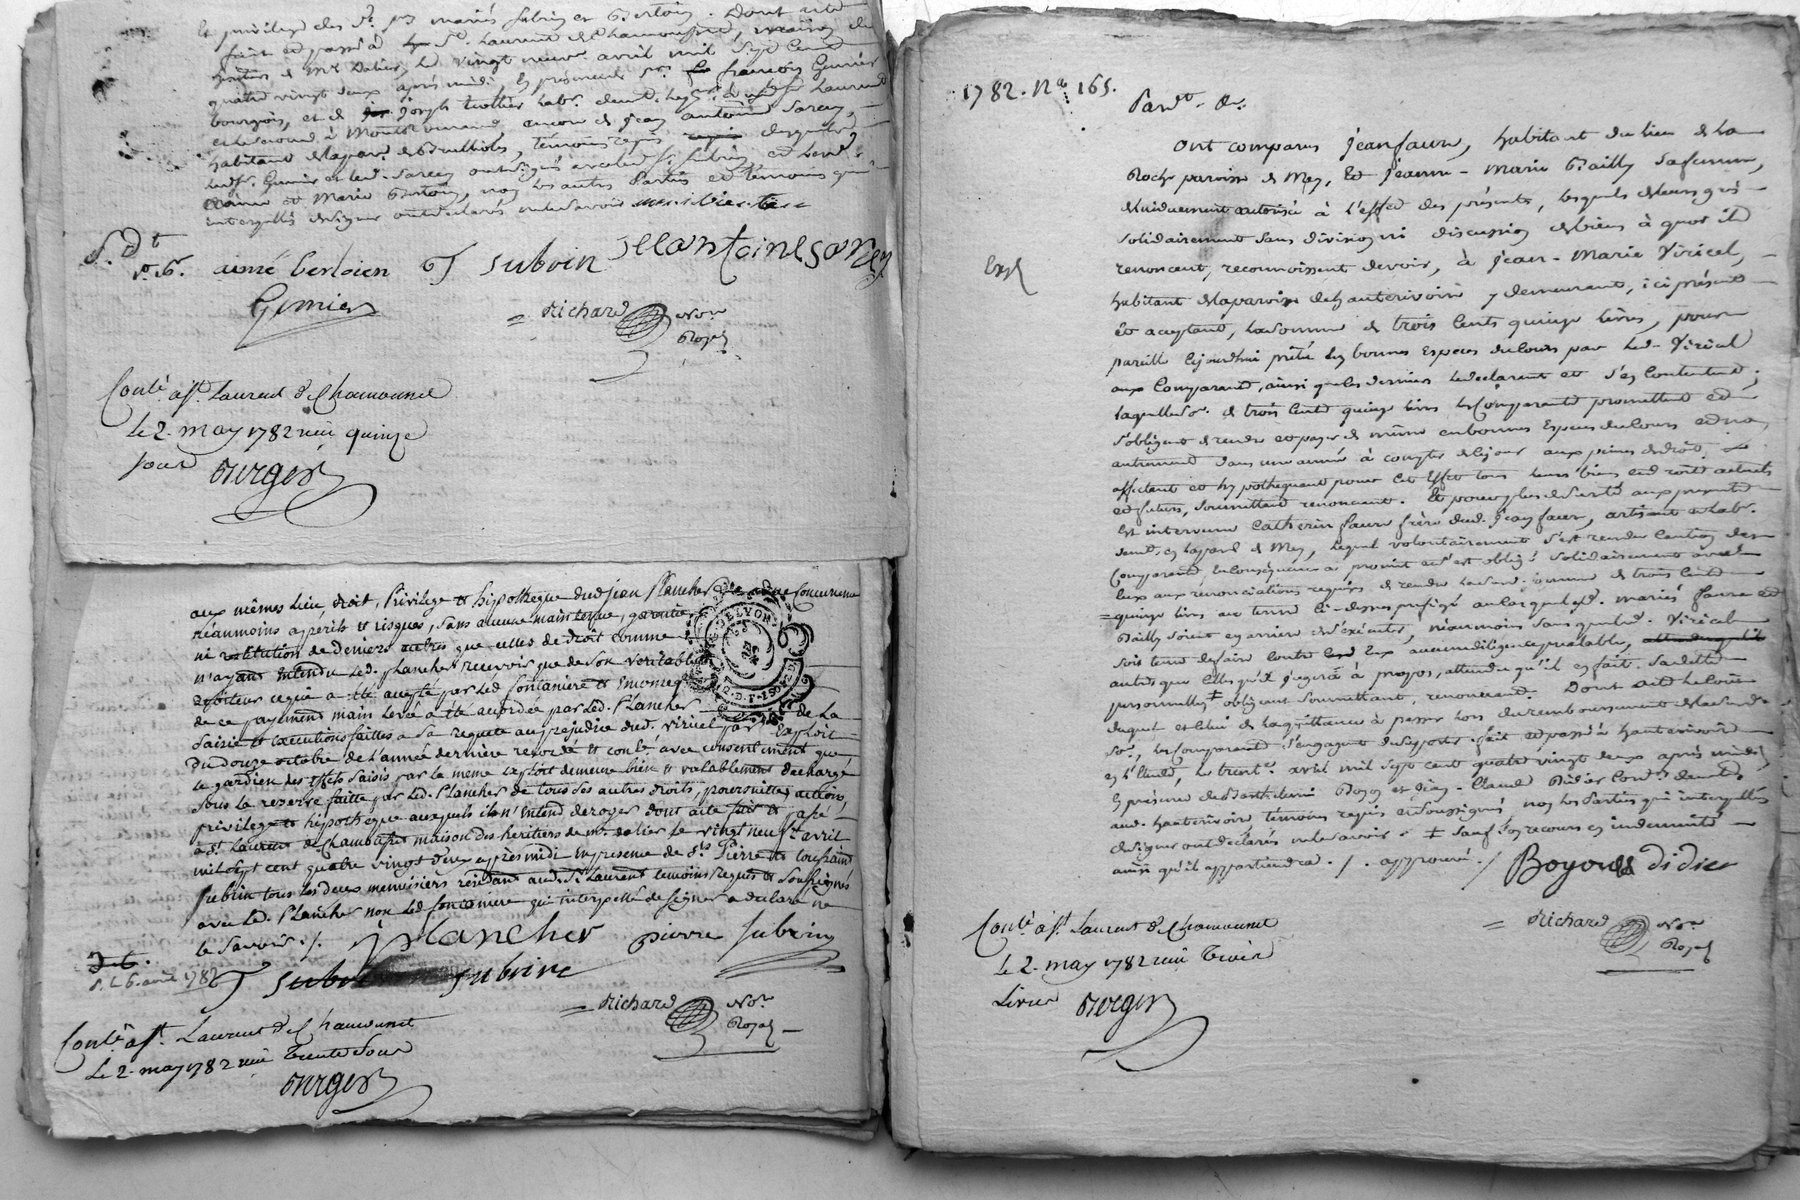 et privilege des Sr. mariés Subrin et Bertoin. Dont acte
fait et passé à St. Laurent de Chamousset, maison des
héritiers de Mr. Dalier, le vingt neuf avril mil sept cent
quatre vingt deux après midi. En présence de Sr. françois Gimier
bourgeois, et de joseph
antoine Sarcey
habitant de la par. de Brullioles, témoins requis
led. Sr. Gimier et led. Sarcey ont signé avec led. Sr. Subrin
et Marie Bertoin, non les autres parties et témoins
interpellés de signer ont déclaré ne le savoir
aimé berloien Subrin antoine Sarcey
Gimier
= Richard Nore.
Royal
Conlé. à St. Laurent de Chamousset
le 2. may 1782 reçu quinze
sous
aux mêmes lieu, droit, Privilege et hipotheque dud jean Plancher
néanmoins à périls et risques, sans aucune maintenue, garantie
ni restitution de deniers autres que celles de droit comme
n'ayant entendu led. Plancher recevoir que de son veritable
debiteur ce qui a été accepté par led fontaniere et
de ce payement main levée a été accordée par led. Plancher de la
saisie et executions faittes a sa requete au préjudice dud. viricel par exploit
du douze octobre de l'année derniere
le gardien des effets saisis par le meme exploit demeure bien et valablement déchargé
sous la reserve faitte par led. Plancher de tous ses autres droits, poursuittes, actions,
privilege et hipotheque auxquels il n'entend deroger dont acte fait et passé
a St. Laurent de Chamousset maison des héritiers de Mr. dalier le vingt neuf avril
mil sept cent quatre vingt deux après midi en presence de Srs. Pierre et toussaint
Subrin tous les deux menuisiers residant aud. St. Laurent temoins requis et soussignés
avec led. Plancher non led. fontaniere qui interpellé de signer a declaré ne
le savoir ./.
Plancher pierre Subrin
T Subrin
= Richard Nore.
Royal
Conlé. à St. Laurent de Chamousset
le 2. may 1782 reçu trente sous
1782. No. 165.
Pardt. &c.
Ont comparus jean faure, habitant du lieu de la
Roche paroisse de Mey, et jeanne-Marie Bailly sa femme,
de lui duement autorisée à l'effet des présentes, lesquels de leurs grés
solidairement sans division ni discussion de biens à quoi ils
renoncent, reconnoissent devoir, à jean-Marie Viricel,
habitant de la paroisse de hauterivoire y demeurant, ici présent
et acceptant, la somme de trois cents quinze livres, pour
pareille cejourdhui prêtée en bonnes especes du cours par led. Viricel
aux comparants, ainsi que les derniers le déclarent et s'en contentent;
laquelle so. de trois cents quinze livres les comparants promettent et
s'obligent de rendre et payer de même en bonnes especes du cours et non
autrement dans une année à compter de ce jour aux peines de droit,
affectant et hypothequant pour cet effet tous leurs biens et droits actuels
et futurs, soumettant renoncant. Et pour plus de sureté aux présentes
est intervenu Catherin faure frère dud. jean faure, artisant et hab.
demt. en la par. de Mey, lequel volontairement s'est rendu caution des
comparants, en conséquence a promis et s'est obligé solidairement avec
eux aux renonciations requises de rendre lad. somme de trois cents
quinze livres au terme ci-dessus préfigé au cas que lesd. mariés faure et
Bailly soient en arriere de s'exécuter, néanmoins sans que led. Viricel
soit tenu de faire contre eux aucunes diligences préalables,
autres que celles qu'il jugera à propos, attendu qu'il en fait sa dette
personnelle ‡ obligeant soumettant, renoncant. Dont acte
duquel et celui de la quittance à passer lors du remboursement de lad.
so., les comparants s'engagent de supporter. fait et passé à hauterivoire
en l'étude, le trente. avril mil sept cent quatre vingt deux après midi,
en présence de Barthelemi Boyou et de Claude Didier
aud. hauterivoire témoins requis et soussignés, non les parties qui interpellées
de signer ont déclaré ne le savoir. ‡ sauf son recours en indemnité
ainsi qu'il appartiendra ./. approuvé ./.
Boyou didier
= Richard Nore.
Royal
Conlé. à St. Laurent de Chamousset
le 2. may 1782 reçu trois
livres